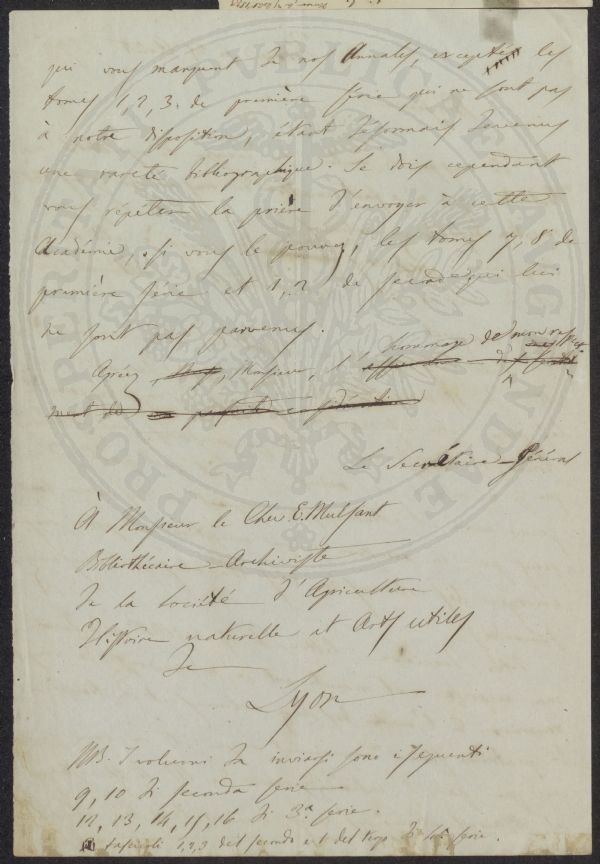 qui vous manquent de nos Annales, excepté les
tomes 1, 2, 3. de première série qui ne sont pas
à notre disposition, étant désormais devenus
une rareté bibliographique. Je dois cependant
vous répéter la prière d'envoyer à cette
Académie, si vous le pouvez, les tomes 7, 8 de
première série et 1, 2 de seconde qui lui
ne sont pas parvenus.
hommage de mon respect
Agréez, Monsieur, l'
parfaite considération
Le Secrétaire Général
À Monsieur le Chev E. Mulsant
Bibliothécaire-Archiviste
de la Société d'Agriculture
Histoire naturelle et Arts utiles
de
Lyon
NB. I volumi da inviarsi sono i seguenti
9, 10 di seconda serie
12, 13, 14, 15, 16 di 3.a serie.
fascicoli 1, 2, 3 del secondo e 1 del terzo di 4.a serie.
PROSPERITATI PUBLICAE AUGENDAE